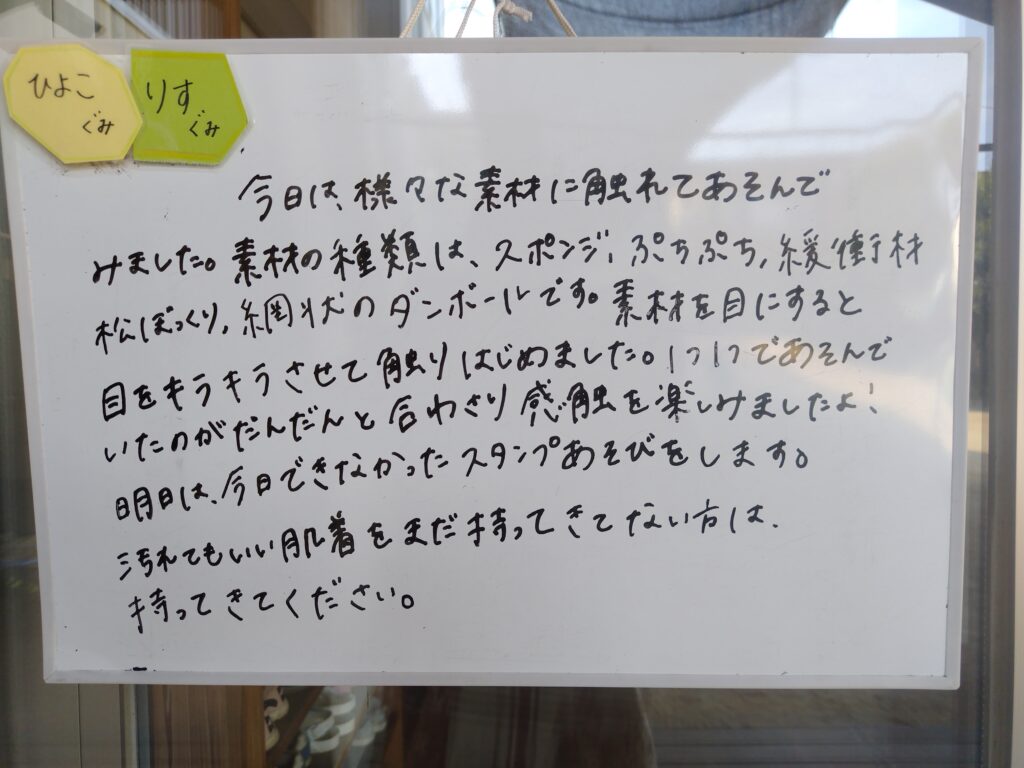 ひよこ
ぐみ
りす
ぐみ
今日は、様々な素材に触れてあそんで
みました。素材の種類は、スポンジ、ぷちぷち、緩衝材
松ぼっくり、網状のダンボールです。素材を目にすると
目をキラキラさせて触りはじめました。1つ1つであそんで
いたのがだんだんと合わさり感触を楽しみましたよ!
明日は、今日できなかったスタンプあそびをします。
汚れてもいい肌着をまだ持ってきてない方は、
持ってきてください。